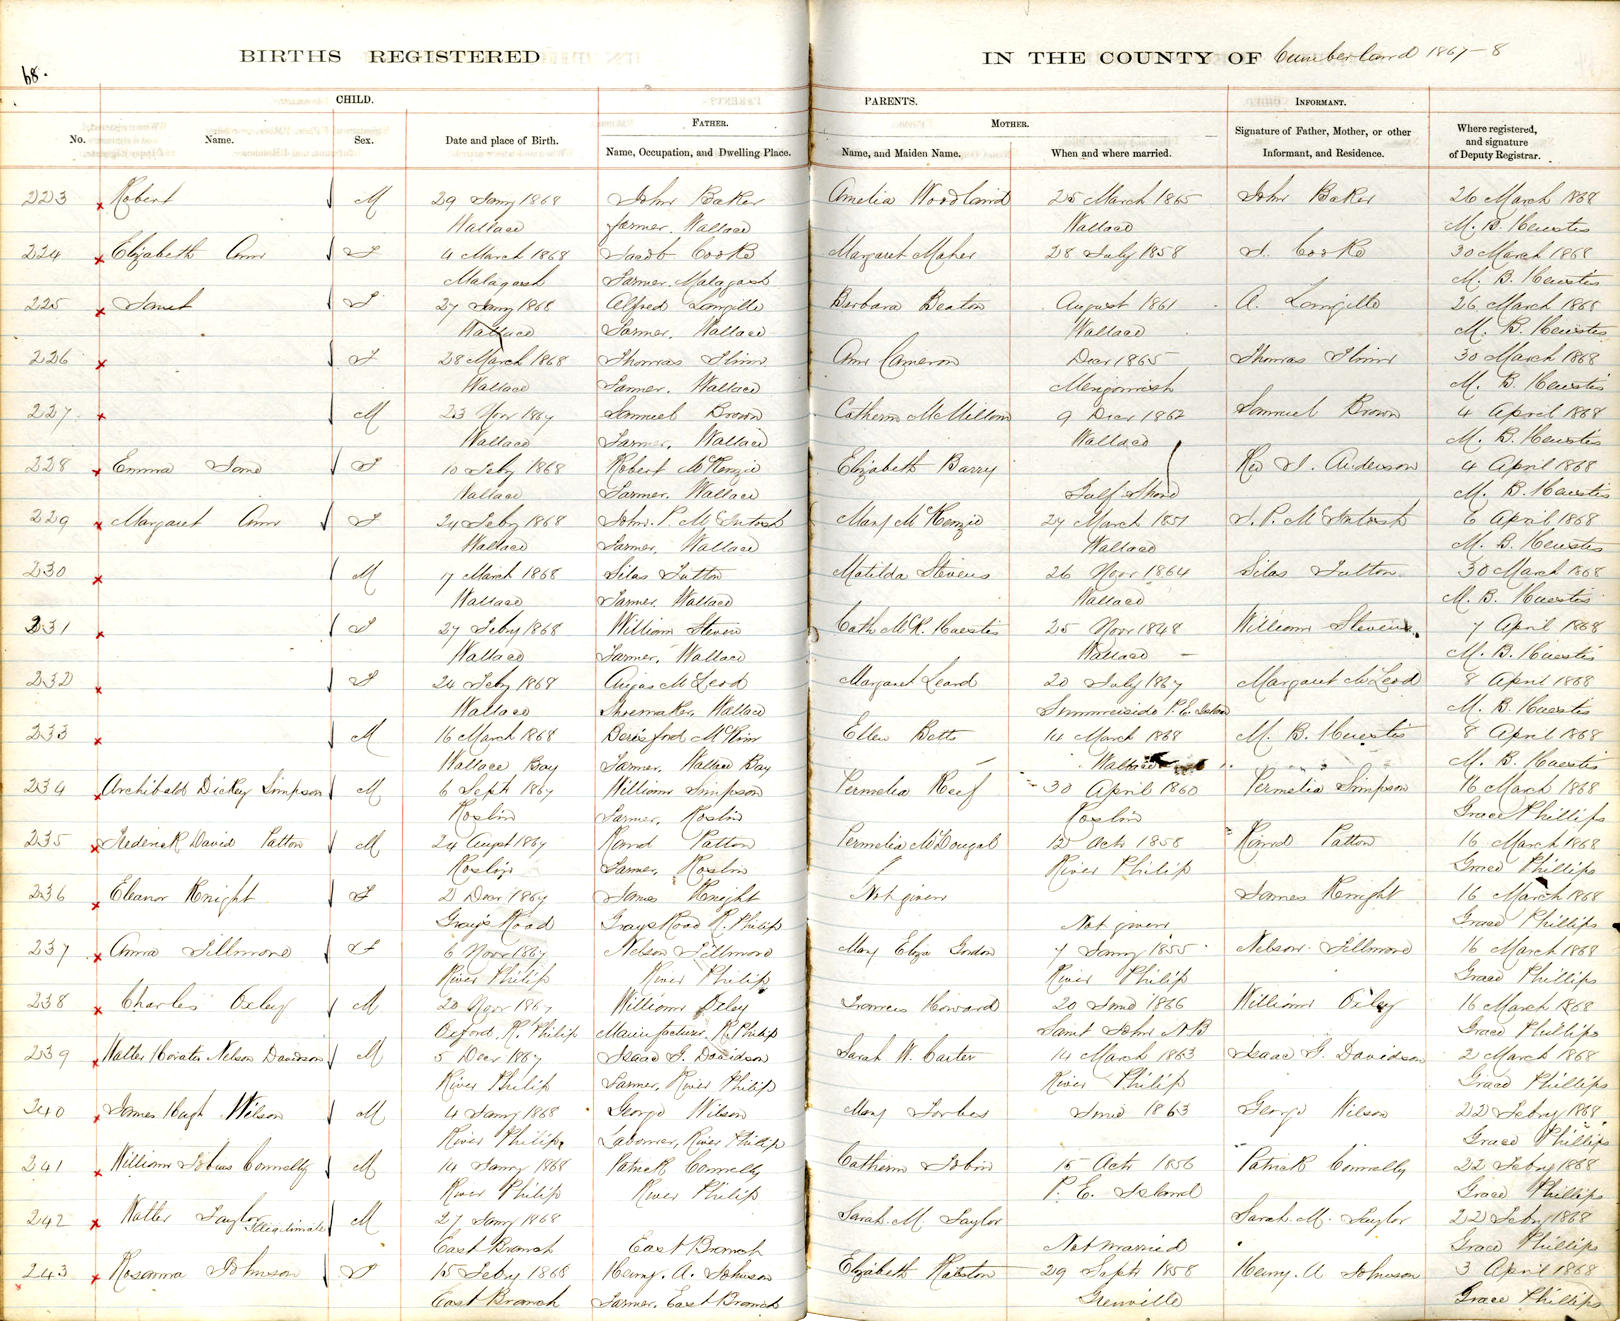 68.
BIRTHS REGISTERED IN THE COUNTY OF Cumberland 1867-8
CHILD. PARENTS. INFORMANT.
FATHER. MOTHER.
No. Name. Sex. Date and place of Birth. Name, Occupation, and Dwelling Place. Name, and Maiden Name. When and where married. Signature of Father, Mother, or other Informant, and Residence. Where registered, and signature of Deputy Registrar.
223 Robert M 29 Jany 1868 John Baker Amelia Woodland 25 March 1865 John Baker 26 March 1868
Wallace farmer Wallace Wallace M. B. Huestis
224 Elizabeth Ann F 4 March 1868 Jacob Cooke Margaret Maher 28 July 1858 J. Cooke 30 March 1868
Malagash Farmer. Malagash M. B. Huestis
225 Janet F 27 Jany 1868 Alfred Langille Barbara Beaton August 1861 A. Langille 26 March 1868
Wallace Farmer. Wallace Wallace M. B. Huestis
226 F 28 March 1868 Thomas Flinn Ann Cameron Decr 1865 Thomas Flinn 30 March 1868
Wallace Farmer. Wallace Merigomish M. B. Huestis
227 M 23 Novr 1867 Samuel Brown Cathern McMillan 9 Decr 1862 Samuel Brown 4 April 1868
Wallace Farmer, Wallace Wallace M. B. Huestis
228 Emma Jane F 10 Feby 1868 Robert McKenzie Elizabeth Barry Rev J. Anderson 4 April 1868
Wallace Farmer. Wallace Gulf Shore M. B. Huestis
229 Margaret Ann F 24 Feby 1868 John. P. McIntosh Mary McKenzie 27 March 1851 J. P. McIntosh 6 April 1868
Wallace Farmer, Wallace Wallace M. B. Huestis
230 M 17 March 1868 Silas Fulton Matilda Stevens 26 Novr 1864 Silas Fulton 30 March 1868
Wallace Farmer. Wallace Wallace M. B. Huestis
231 F 27 Feby 1868 William Steven Cath McK. Huestis 25 Novr 1848 William Stevens 7 April 1868
Wallace Farmer. Wallace Wallace M. B. Huestis
232 F 24 Feby 1868 Angas McLeod Margaret Leard 20 July 1867 Margaret McLeod 8 April 1868
Wallace Shoemaker, Wallace Summerside P. E. Island M. B. Huestis
233 M 16 March 1868 Beresford McKim Ellen Betts 14 March 1868 M. B. Huestis 8 April 1868
Wallace Bay Farmer. Wallace Bay Wallace M. B. Huestis
234 Archibald Dickey Simpson M 6 Septr 1867 William Simpson Permelia Reef 30 April 1860 Permelia Simpson 16 March 1868
Roslin Farmer, Roslin Roslin Grace Phillips
235 Frederick David Patton M 24 Augst 1867 Patton Permelia McDougal 12 Octr 1858 Patton 16 March 1868
Roslin Farmer, Roslin River Philip Grace Phillips
236 Eleanor Knight F 2 Decr 1867 James Knight Not given James Knight 16 March 1868
Grays Road Grays Road R. Philip Not given Grace Phillips
237 Anna Fillmore F 6 Novr 1867 Nelson Fillmore Mary Eliza Gordon 7 Jany 1855 Nelson Fillmore 16 March 1868
River Philip River Philip River Philip Grace Phillips
238 Charles Oxley M 20 Novr 1867 William Oxley Frances Howard 20 June 1866 William Oxley 16 March 1868
Oxford. R. Philip Manufacturer, R. Philip Saint John N B Grace Phillips
239 Walter Horatio Nelson Davidson M 5 Decr 1867 Isaac G. Davidson Sarah W. Carter 14 March 1863 Isaac G. Davidson 2 March 1868
River Philip Farmer, River Philip River Philip Grace Phillips
240 James Hugh Wilson M 4 Jany 1868 George Wilson Mary Forbes June 1863 George Wilson 22 Feby 1868
River Philip. Labourer, River Philip Grace Phillips
241 William Tobias Connelly M 14 Jany 1868 Patrick Connelly Cathern Tobin 15 Octr 1856 Patrick Connelly 22 Feby 1868
River Philip River Philip P. E. Island Grace Phillips
242 Walter Taylor Illegitimate M 27 Jany 1868 Sarah. M. Taylor Sarah. M. Taylor 22 Feby 1868
East Branch East Branch Not married Grace Phillips
243 Rosanna Johnson F 15 Feby 1868 Henry. A. Johnson Elizabeth Ralston 29 Septr 1858 Henry. A Johnson 3 April 1868
East Branch Farmer. East Branch Grenville Grace Phillips